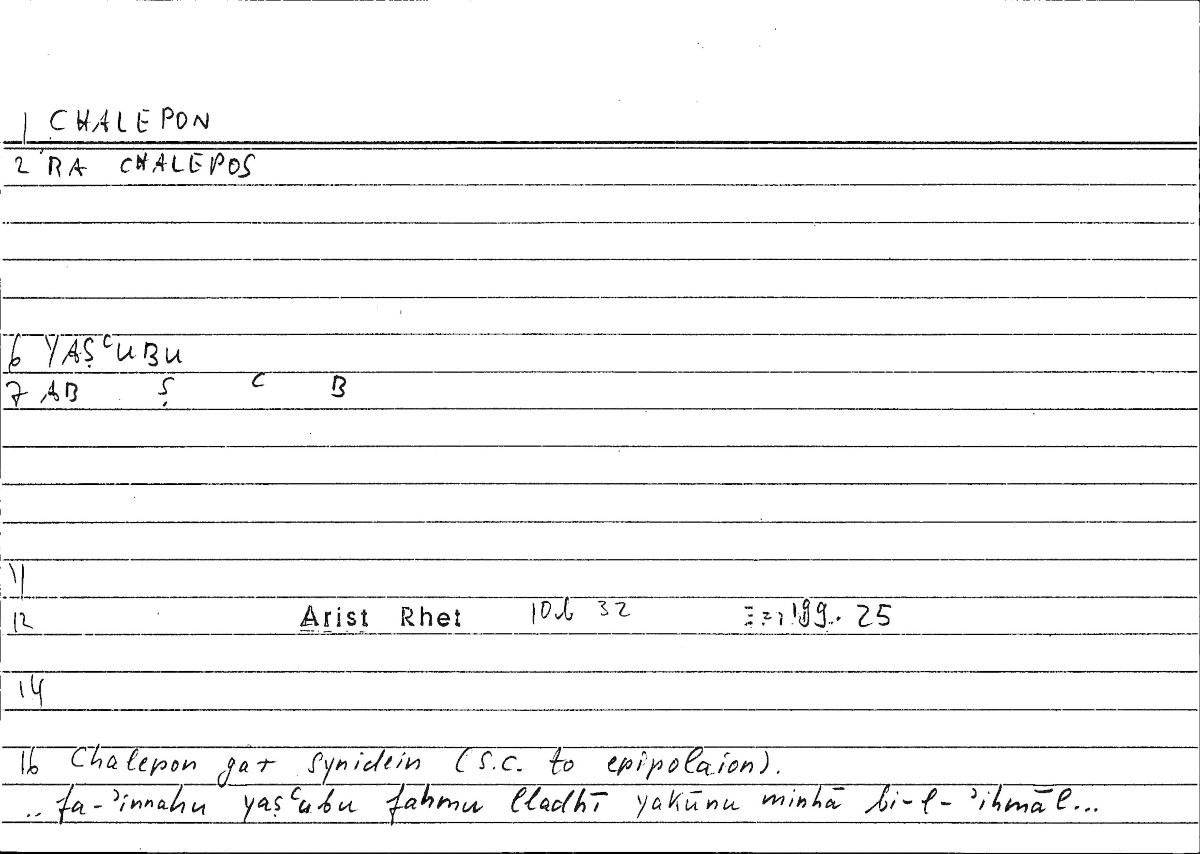 1 CHALEPON
2 'RA CHALEPOS
6 YAṢʿUBU
7 AB Ṣ ʿ B
11
12 Arist Rhet 10b 32 199. 25
14
16 Chalepon gar synidein (s.c. to epipolaion).
.. fa-ʾinnahu yaṣʿubu fahmu lladhī yakūnu minhā bi-l-ʾihmāl...